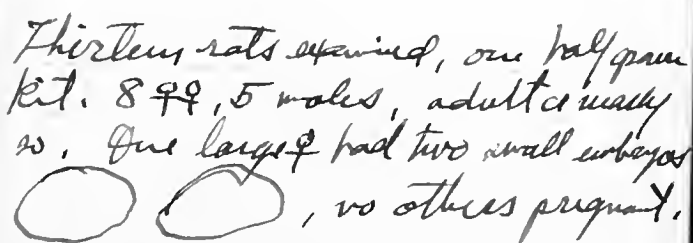 Thirteen rats examined, one half grown
Kit. 8 ♀♀, 5 males, adult or nearly
so. One large ♀ had two small embryos
, no others pregnant.